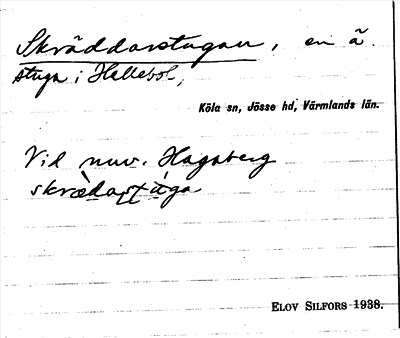 Skräddarstugan, en ä.
stuga i Hellebol,
Köla sn, Jösse hd, Värmlands län.
Vid nuv. Hagaberg
skræ̀darstúga
ELOV SILFORS 1938.